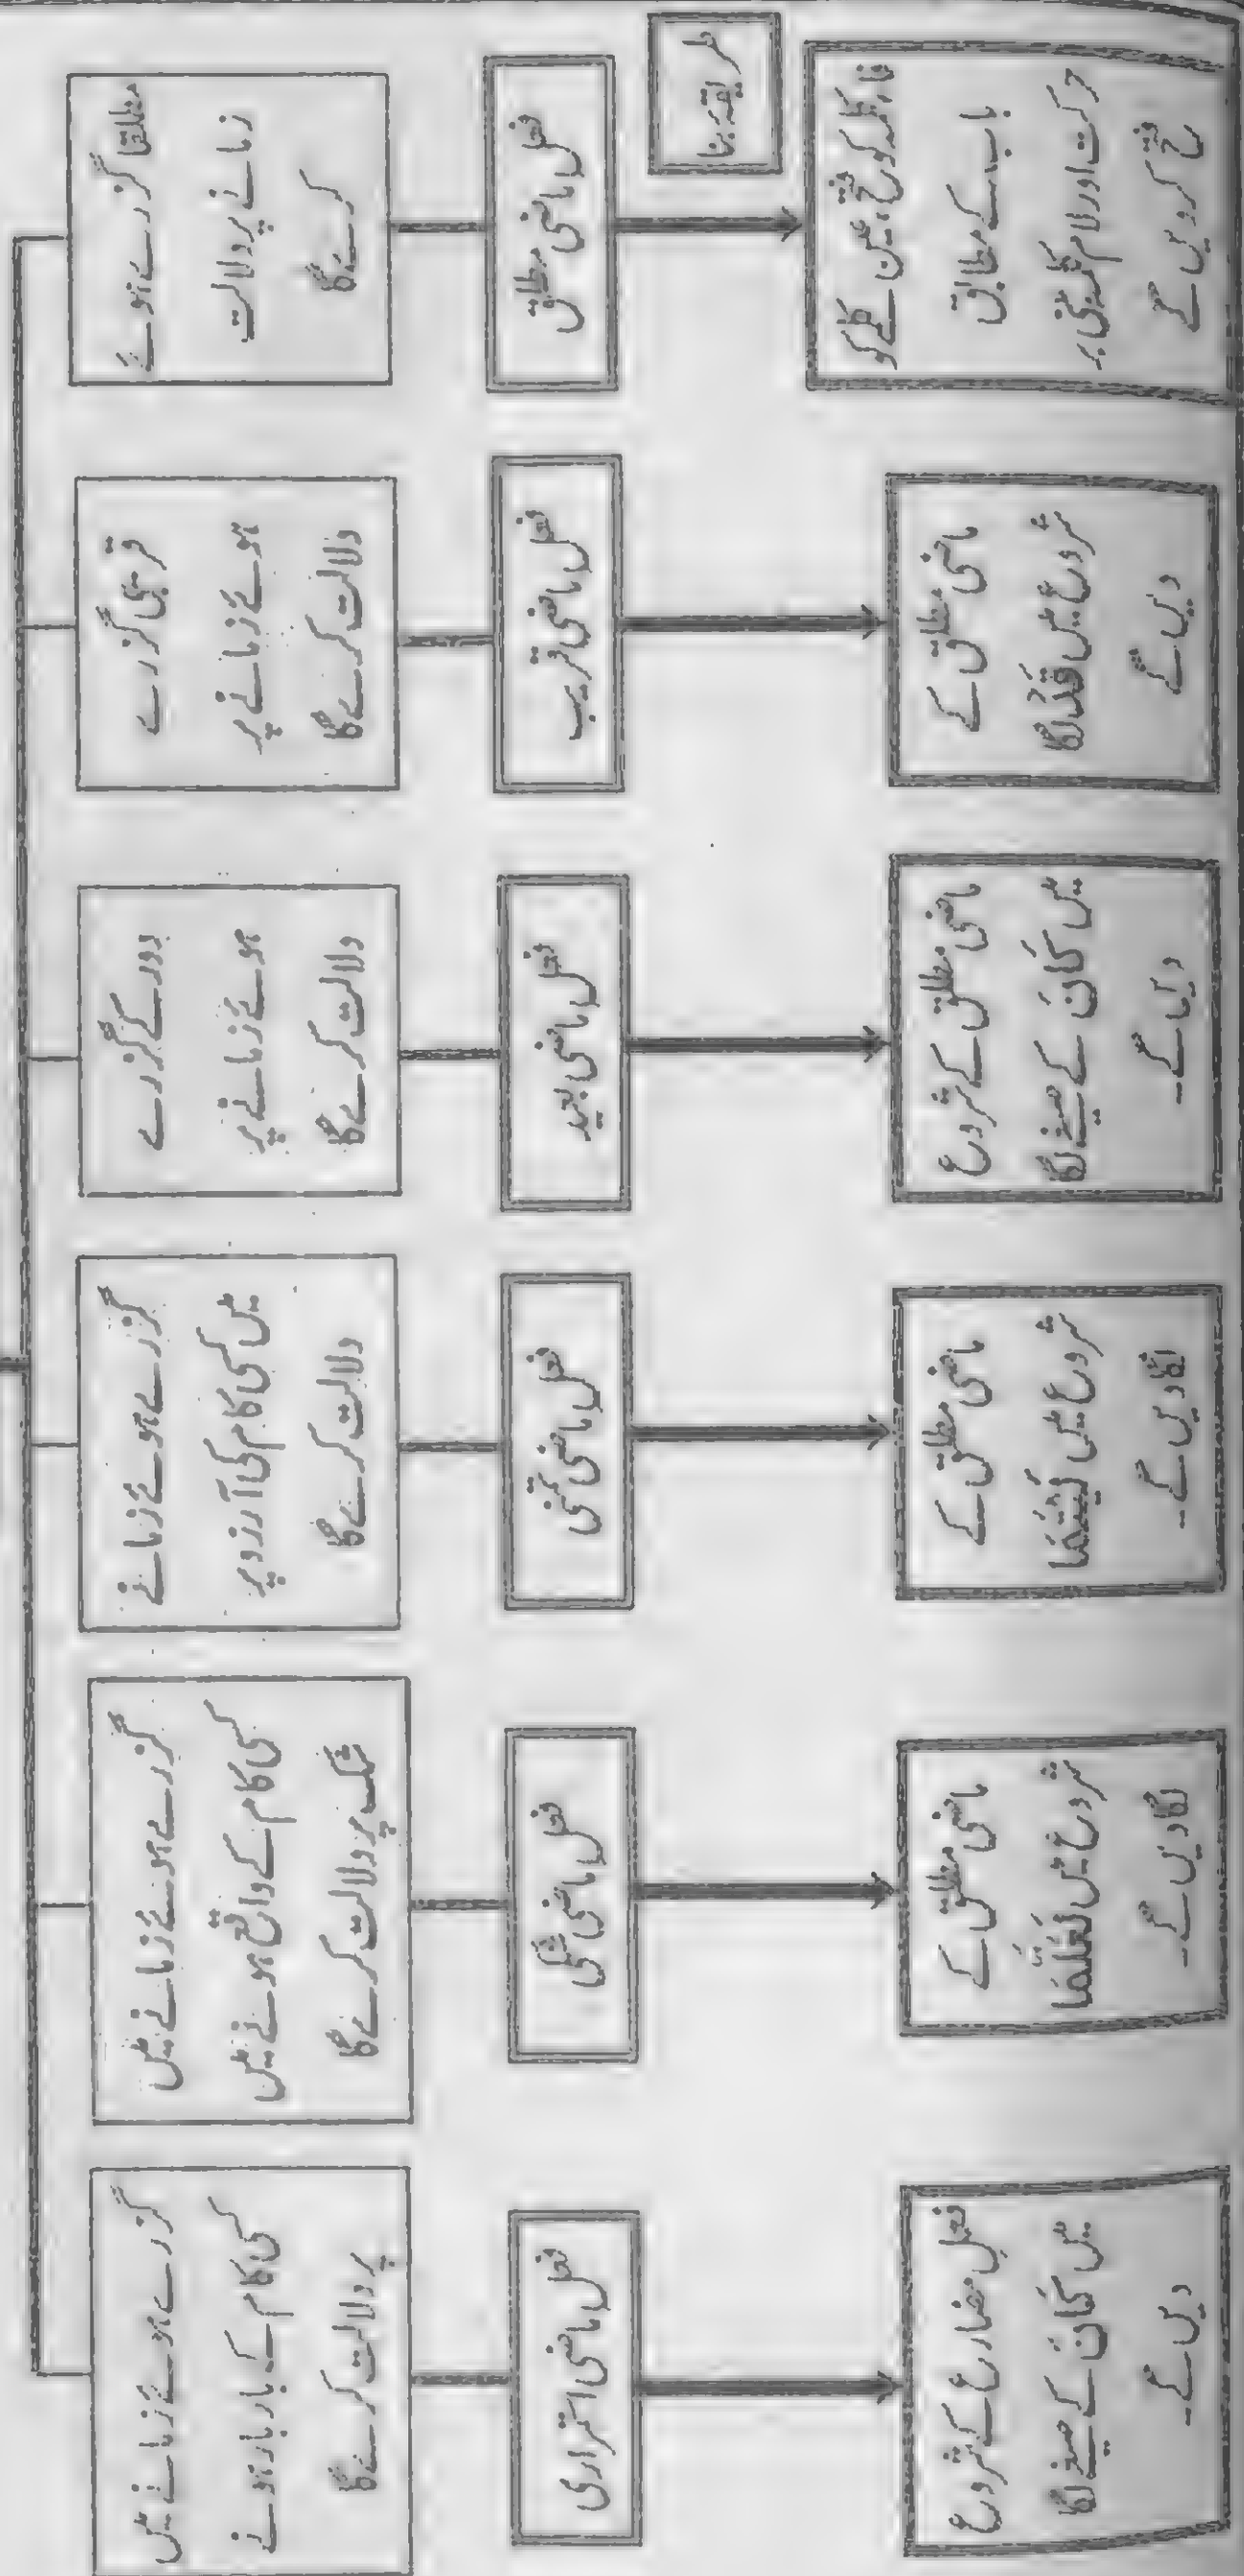 مطلقا گزرے ہوئے
زمانے پر دلالت
کرے گا
فعل ماضی مطلق
طریقہ بنا
فاء کلمہ کو فتح، عین کلمے کو
باب کے مطابق
حرکت اور لام کلمہ مبنی بر
فتح کر دیں گے
قریبی گزرے
ہوئے زمانے پر
دلالت کرے گا
فعل ماضی قریب
ماضی مطلق کے
شروع میں قَدْ لگا
دیں گے
دور کے گزرے
ہوئے زمانے پر
دلالت کرے گا
فعل ماضی بعید
ماضی مطلق کے شروع
میں کَانَ کے صیغے لگا
دیں گے۔
گزرے ہوئے زمانے
میں کسی کام کی آرزو پر
دلالت کرے گا
فعل ماضی تمنی
ماضی مطلق کے
شروع میں لَيْتَمَا
لگا دیں گے۔
گزرے ہوئے زمانے میں
کسی کام کے واقع ہونے میں
شک پر دلالت کرے گا
فعل ماضی شکی
ماضی مطلق کے
شروع میں لَعَلَّمَا
لگا دیں گے۔
گزرے ہوئے زمانے میں
کسی کام کے بار بار ہونے
پر دلالت کرے گا
فعل ماضی استمراری
فعل مضارع کے شروع
میں کَانَ کے صیغے لگا
دیں گے۔